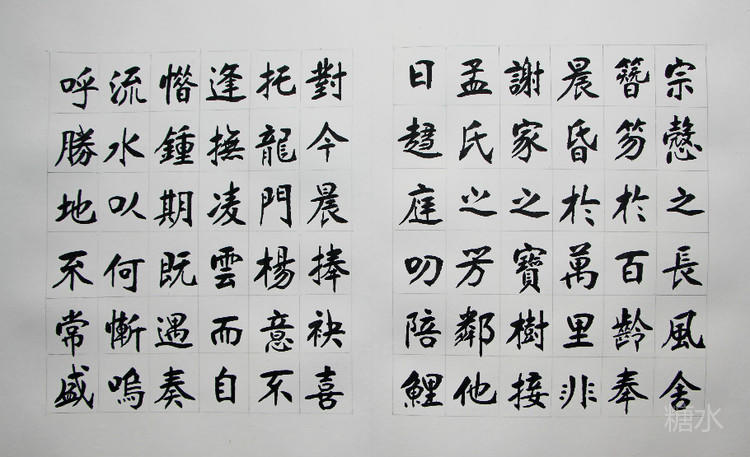 宗愨之長風舍
簪笏於百齡奉
晨昏於萬里非
謝家之寶樹接
孟氏之芳鄰他
日趨庭叨陪鯉
對今晨捧袂喜
托龍門楊意不
逢撫凌雲而自
惜鍾期既遇奏
流水以何慚嗚
呼勝地不常盛
糖水